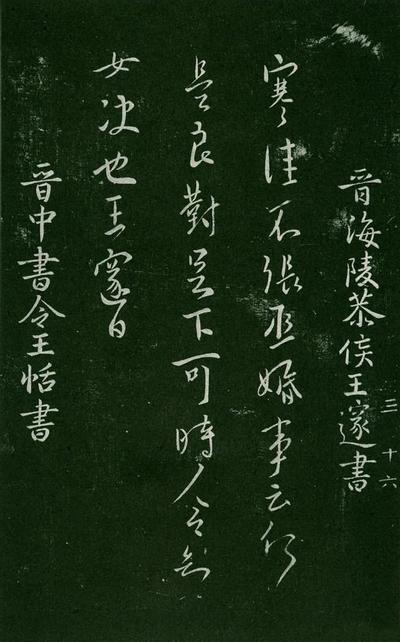 晋海陵恭侯王邃書
三十六
張丞婚事云何
良對足下可時人令知
女決也王邃白
晋中書令王恬書